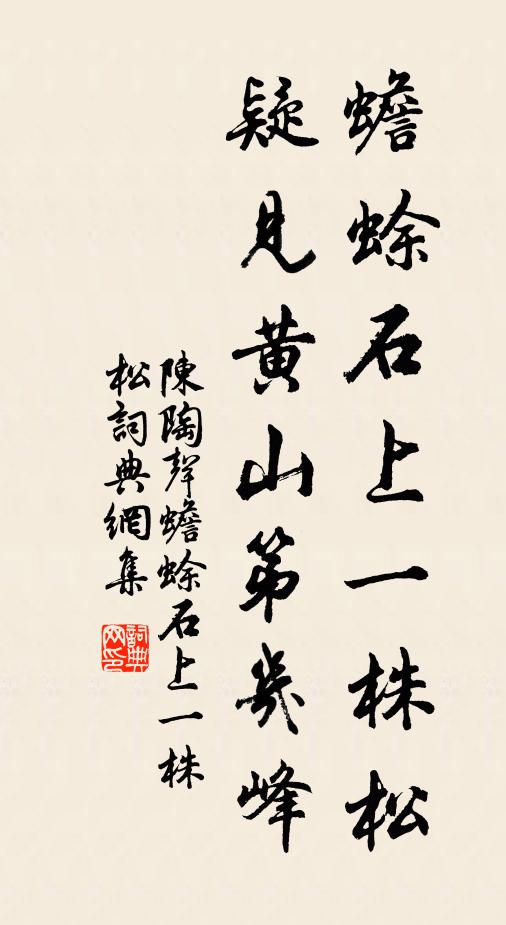 蟾蜍石上一株松
疑見黃山第幾峰
陳陶聲蟾蜍石上一株
松詞典網集
詞典
网印